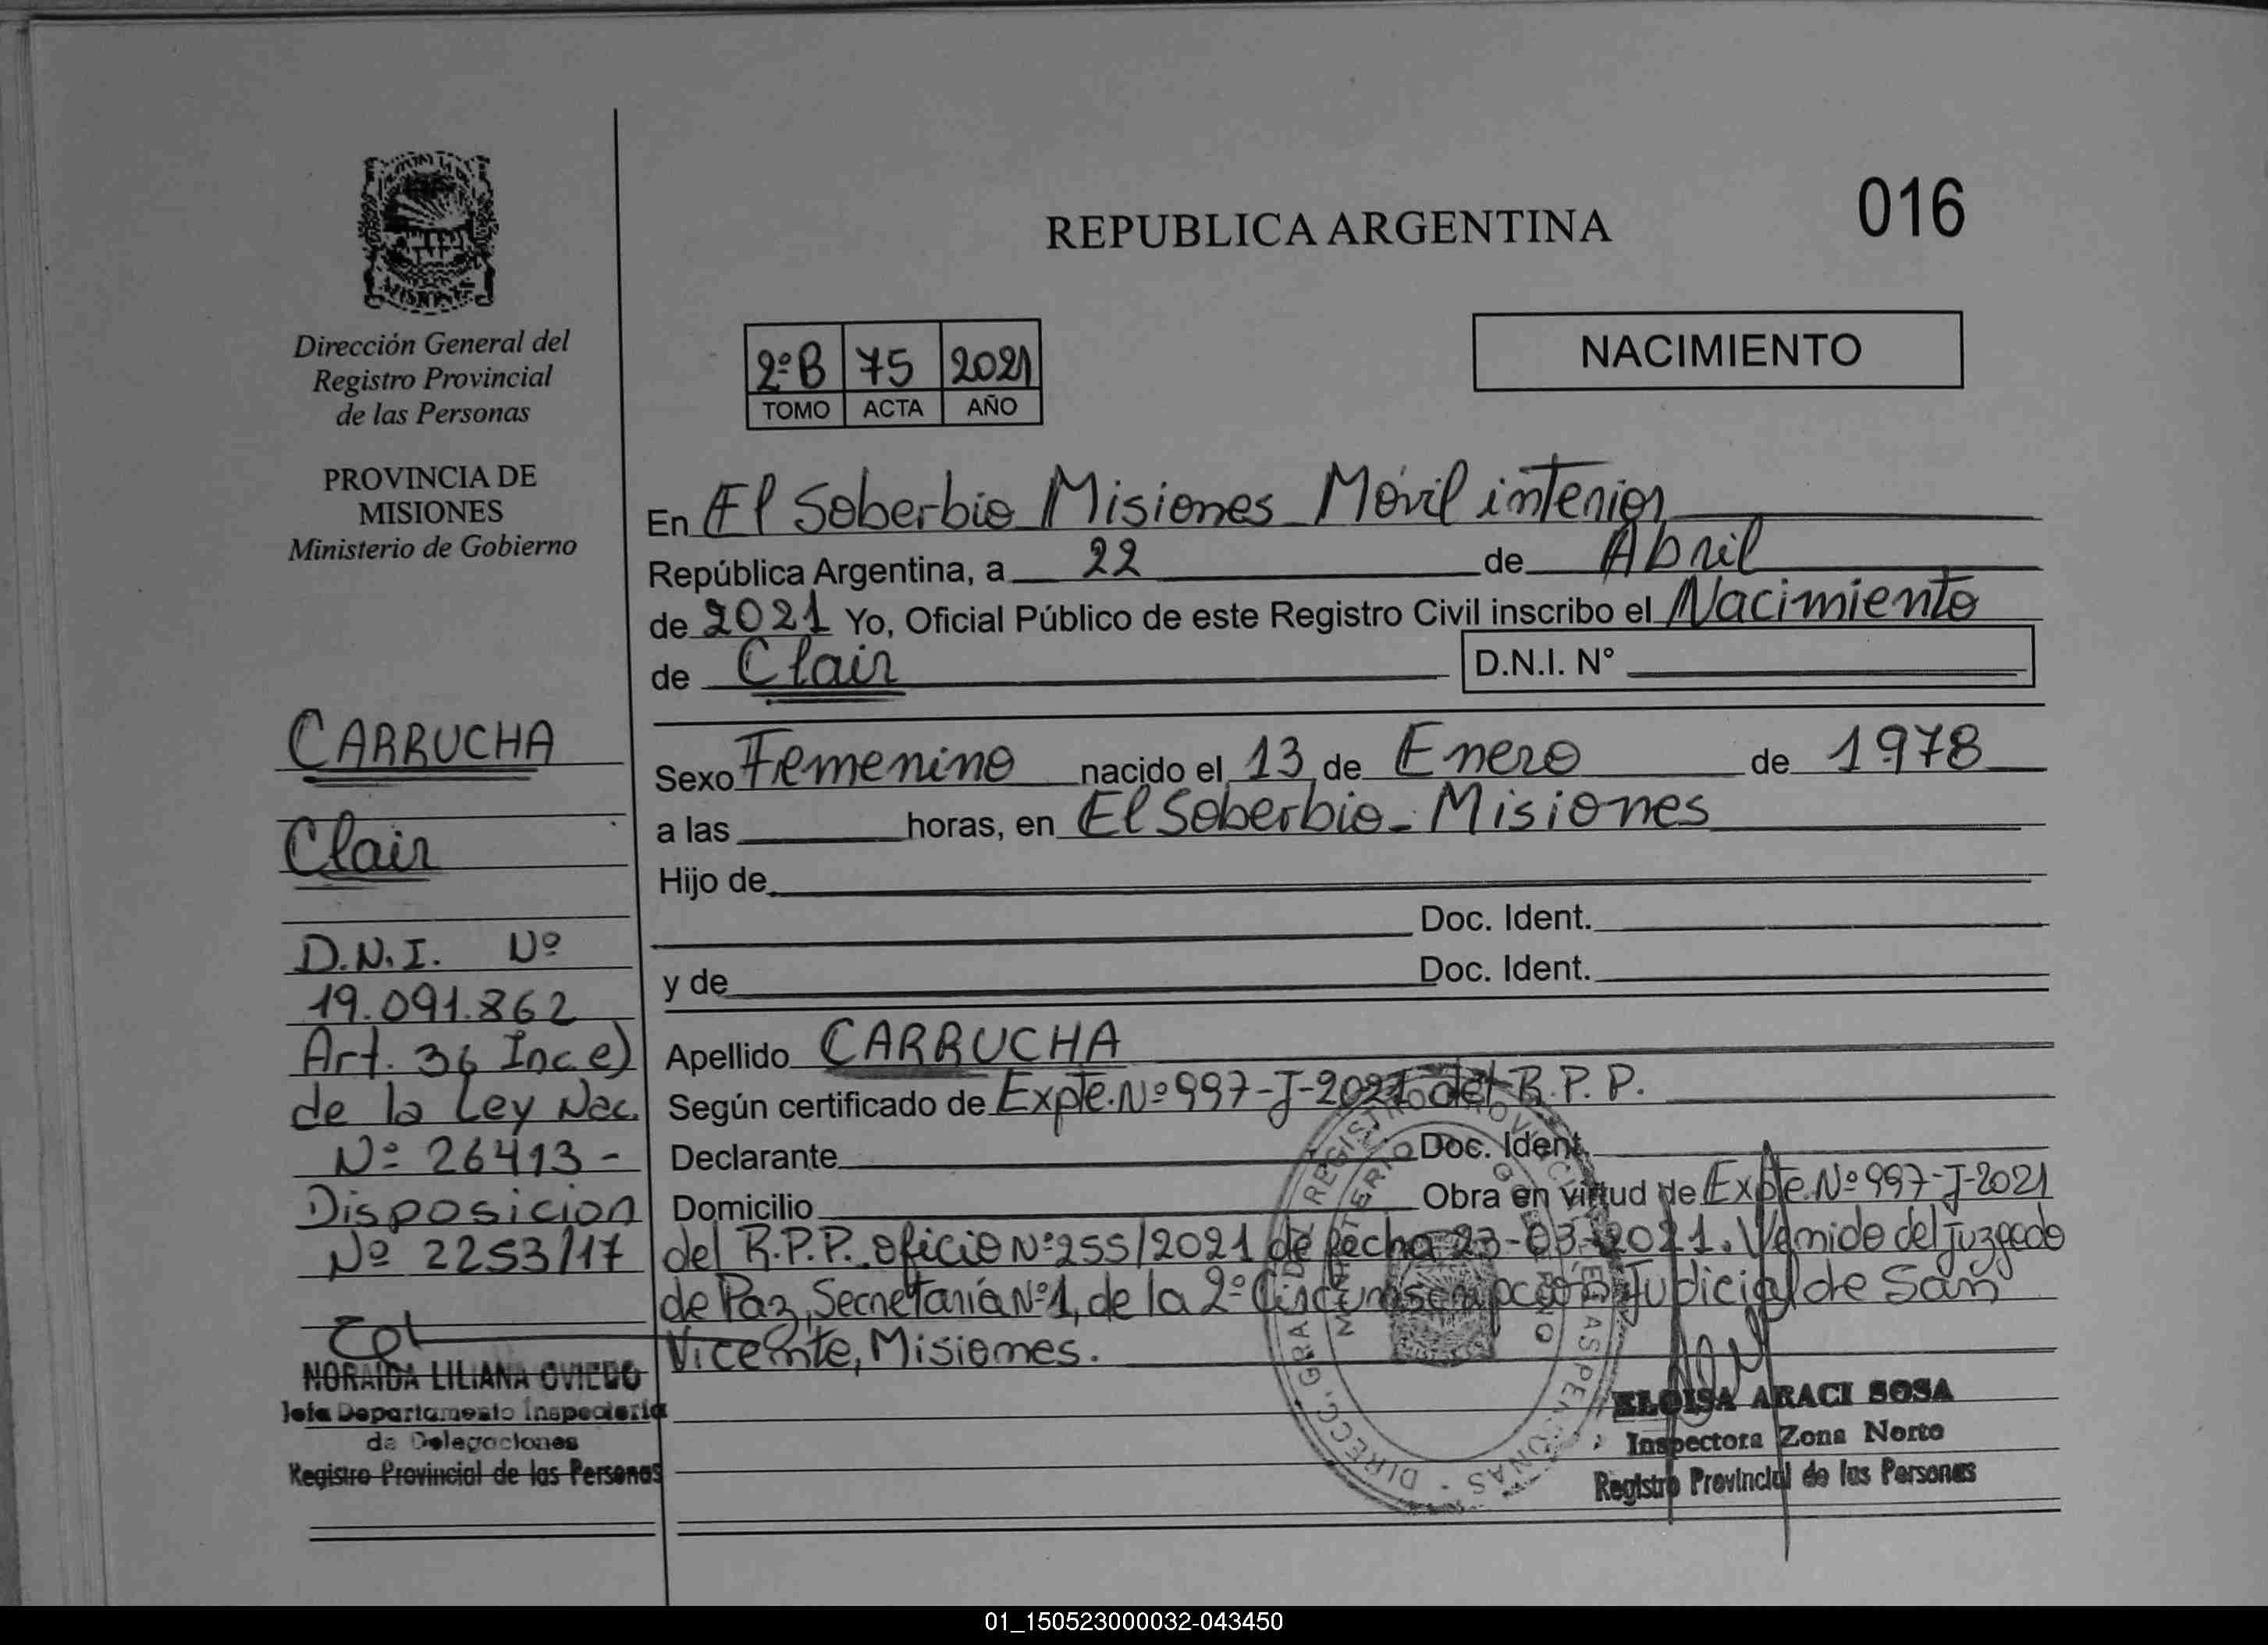 REPUBLICA ARGENTINA
016
Dirección General del
Registro Provincial
de las Personas
PROVINCIA DE
MISIONES
Ministerio de Gobierno
2ºB 75 2021
TOMO ACTA AÑO
NACIMIENTO
En El Soberbio Misiones Móvil interior
República Argentina, a 22 de Abril
de 2021 Yo, Oficial Público de este Registro Civil inscribo el Nacimiento
de Clair D.N.I. N°
Sexo Femenino nacido el 13 de Enero de 1978
a las horas, en El Soberbio - Misiones
Hijo de
Doc. Ident.
y de Doc. Ident.
Apellido CARRUCHA
Según certificado de Expte. Nº 997-J-2021 del R.P.P.
Declarante Doc. Ident.
Domicilio Obra en virtud de Expte. Nº 997-J-2021
del R.P.P. oficio Nº 255/2021 de fecha 23-03-2021. Venido del juzgado
de Paz, Secretaría Nº1, de la 2º Circunscripción Judicial de San
Vicente, Misiones.
CARRUCHA
Clair
D.N.I. Nº
19.091.862
Art. 36 Inc. e)
de la Ley Nac.
Nº 26413 -
Disposicion
Nº 2253/17
NORAIDA LILIANA OVIEDO
Jefa Departamento Inspectoria
de Delegaciones
Registro Provincial de las Personas
ELOISA ARACI SOSA
Inspectora Zona Norte
Registro Provincial de las Personas
01_150523000032-043450